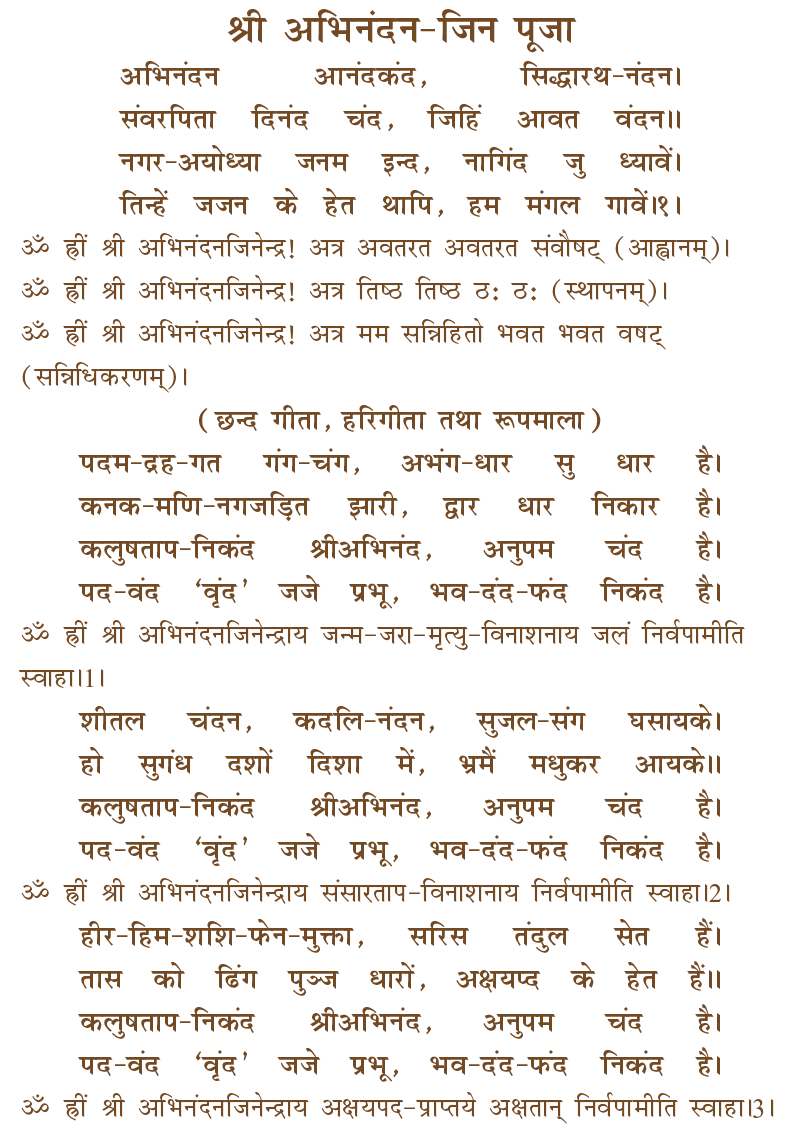 श्री अभिनंदन-जिन पूजा
अभिनंदन आनंदकंद, सिद्धारथ-नंदन।
संवरपिता दिनंद चंद, जिहिं आवत वंदन॥
नगर-अयोध्या जनम इन्द, नागिंद जु ध्यावें।
तिन्हें जजन के हेत थापि, हम मंगल गावें।१।
ॐ ह्रीं श्री अभिनंदनजिनेन्द्र! अत्र अवतरत अवतरत संवौषट् (आह्वानम्)।
ॐ ह्रीं श्री अभिनंदनजिनेन्द्र! अत्र तिष्ठ तिष्ठ ठ: ठ: (स्थापनम्)।
ॐ ह्रीं श्री अभिनंदनजिनेन्द्र! अत्र मम सन्निहितो भवत भवत वषट्
(सन्निधिकरणम्)।
(छन्द गीता, हरिगीता तथा रूपमाला)
पदम-द्रह-गत गंग-चंग, अभंग-धार सु धार है।
कनक-मणि-नगजड़ित झारी, द्वार धार निकार है।
कलुषताप-निकंद श्रीअभिनंद, अनुपम चंद है।
पद-वंद ‘वृंद’ जजे प्रभू, भव-दंद-फंद निकंद है।
ॐ ह्रीं श्री अभिनंदनजिनेन्द्राय जन्म-जरा-मृत्यु-विनाशनाय जलं निर्वपामीति
स्वाहा।1।
शीतल चंदन, कदलि-नंदन, सुजल-संग घसायके।
हो सुगंध दशों दिशा में, भ्रमैं मधुकर आयके॥
कलुषताप-निकंद श्रीअभिनंद, अनुपम चंद है।
पद-वंद ‘वृंद’ जजे प्रभू, भव-दंद-फंद निकंद है।
ॐ ह्रीं श्री अभिनंदनजिनेन्द्राय संसारताप-विनाशनाय निर्वपामीति स्वाहा।2।
हीर-हिम-शशि-फेन-मुक्ता, सरिस तंदुल सेत हैं।
तास को ढिंग पुञ्ज धारों, अक्षयप्द के हेत हैं॥
कलुषताप-निकंद श्रीअभिनंद, अनुपम चंद है।
पद-वंद ‘वृंद’ जजे प्रभू, भव-दंद-फंद निकंद है।
ॐ ह्रीं श्री अभिनंदनजिनेन्द्राय अक्षयपद-प्राप्तये अक्षतान् निर्वपामीति स्वाहा।3।